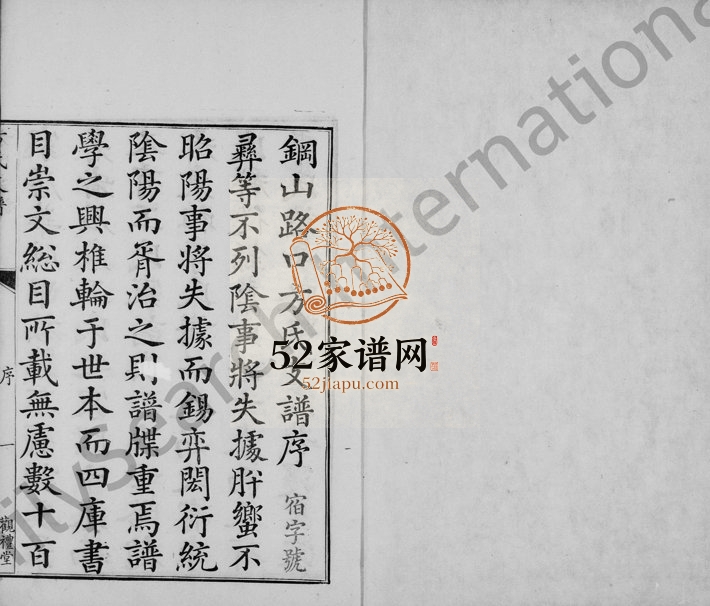 鋼山路口方氏支譜序 宿字號
彞等不列陰事將失據肸蠁不
昭陽事將失據而錫弈閎衍統
陰陽而胥治之則譜牒重焉譜
學之興椎輪于世本而四庫書
目崇文總目所載無慮數十百
序
一
觀禮堂
52家谱网
52jiapu.com
FamilySearch International